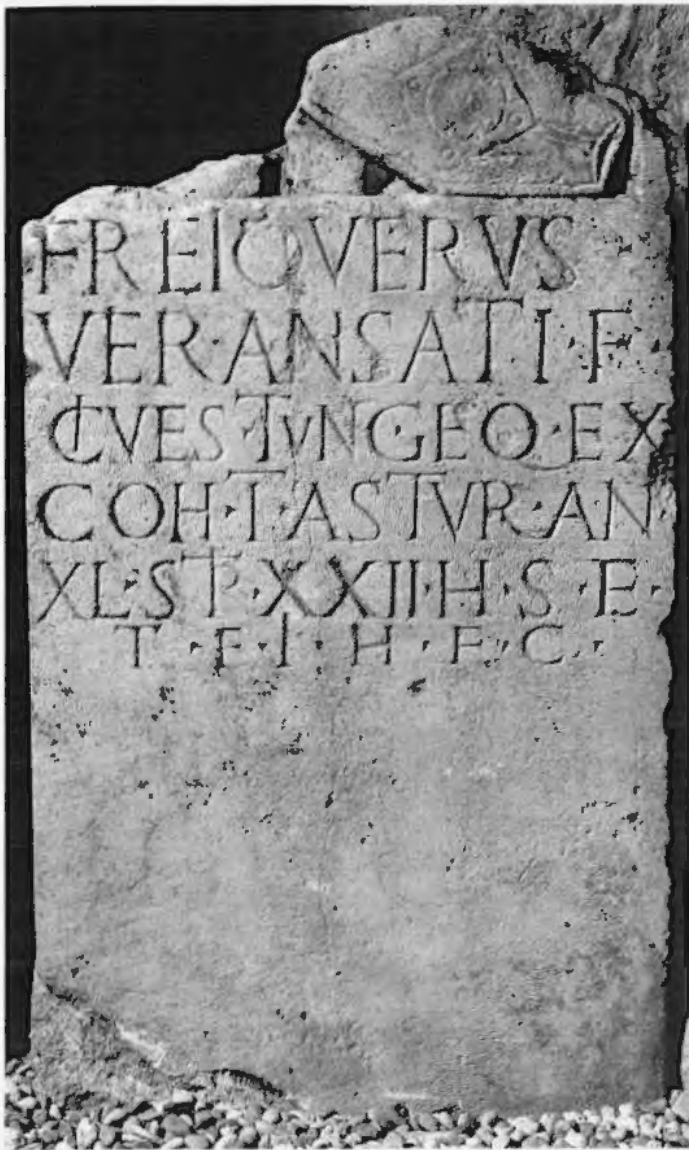 FREIOVERVS
VERANSATI·F
CIVES·TVNG·EQ·EX
COH·I·ASTVR·AN·
XL·STP·XXII·H·S·E·
T·F·I·H·F·C·